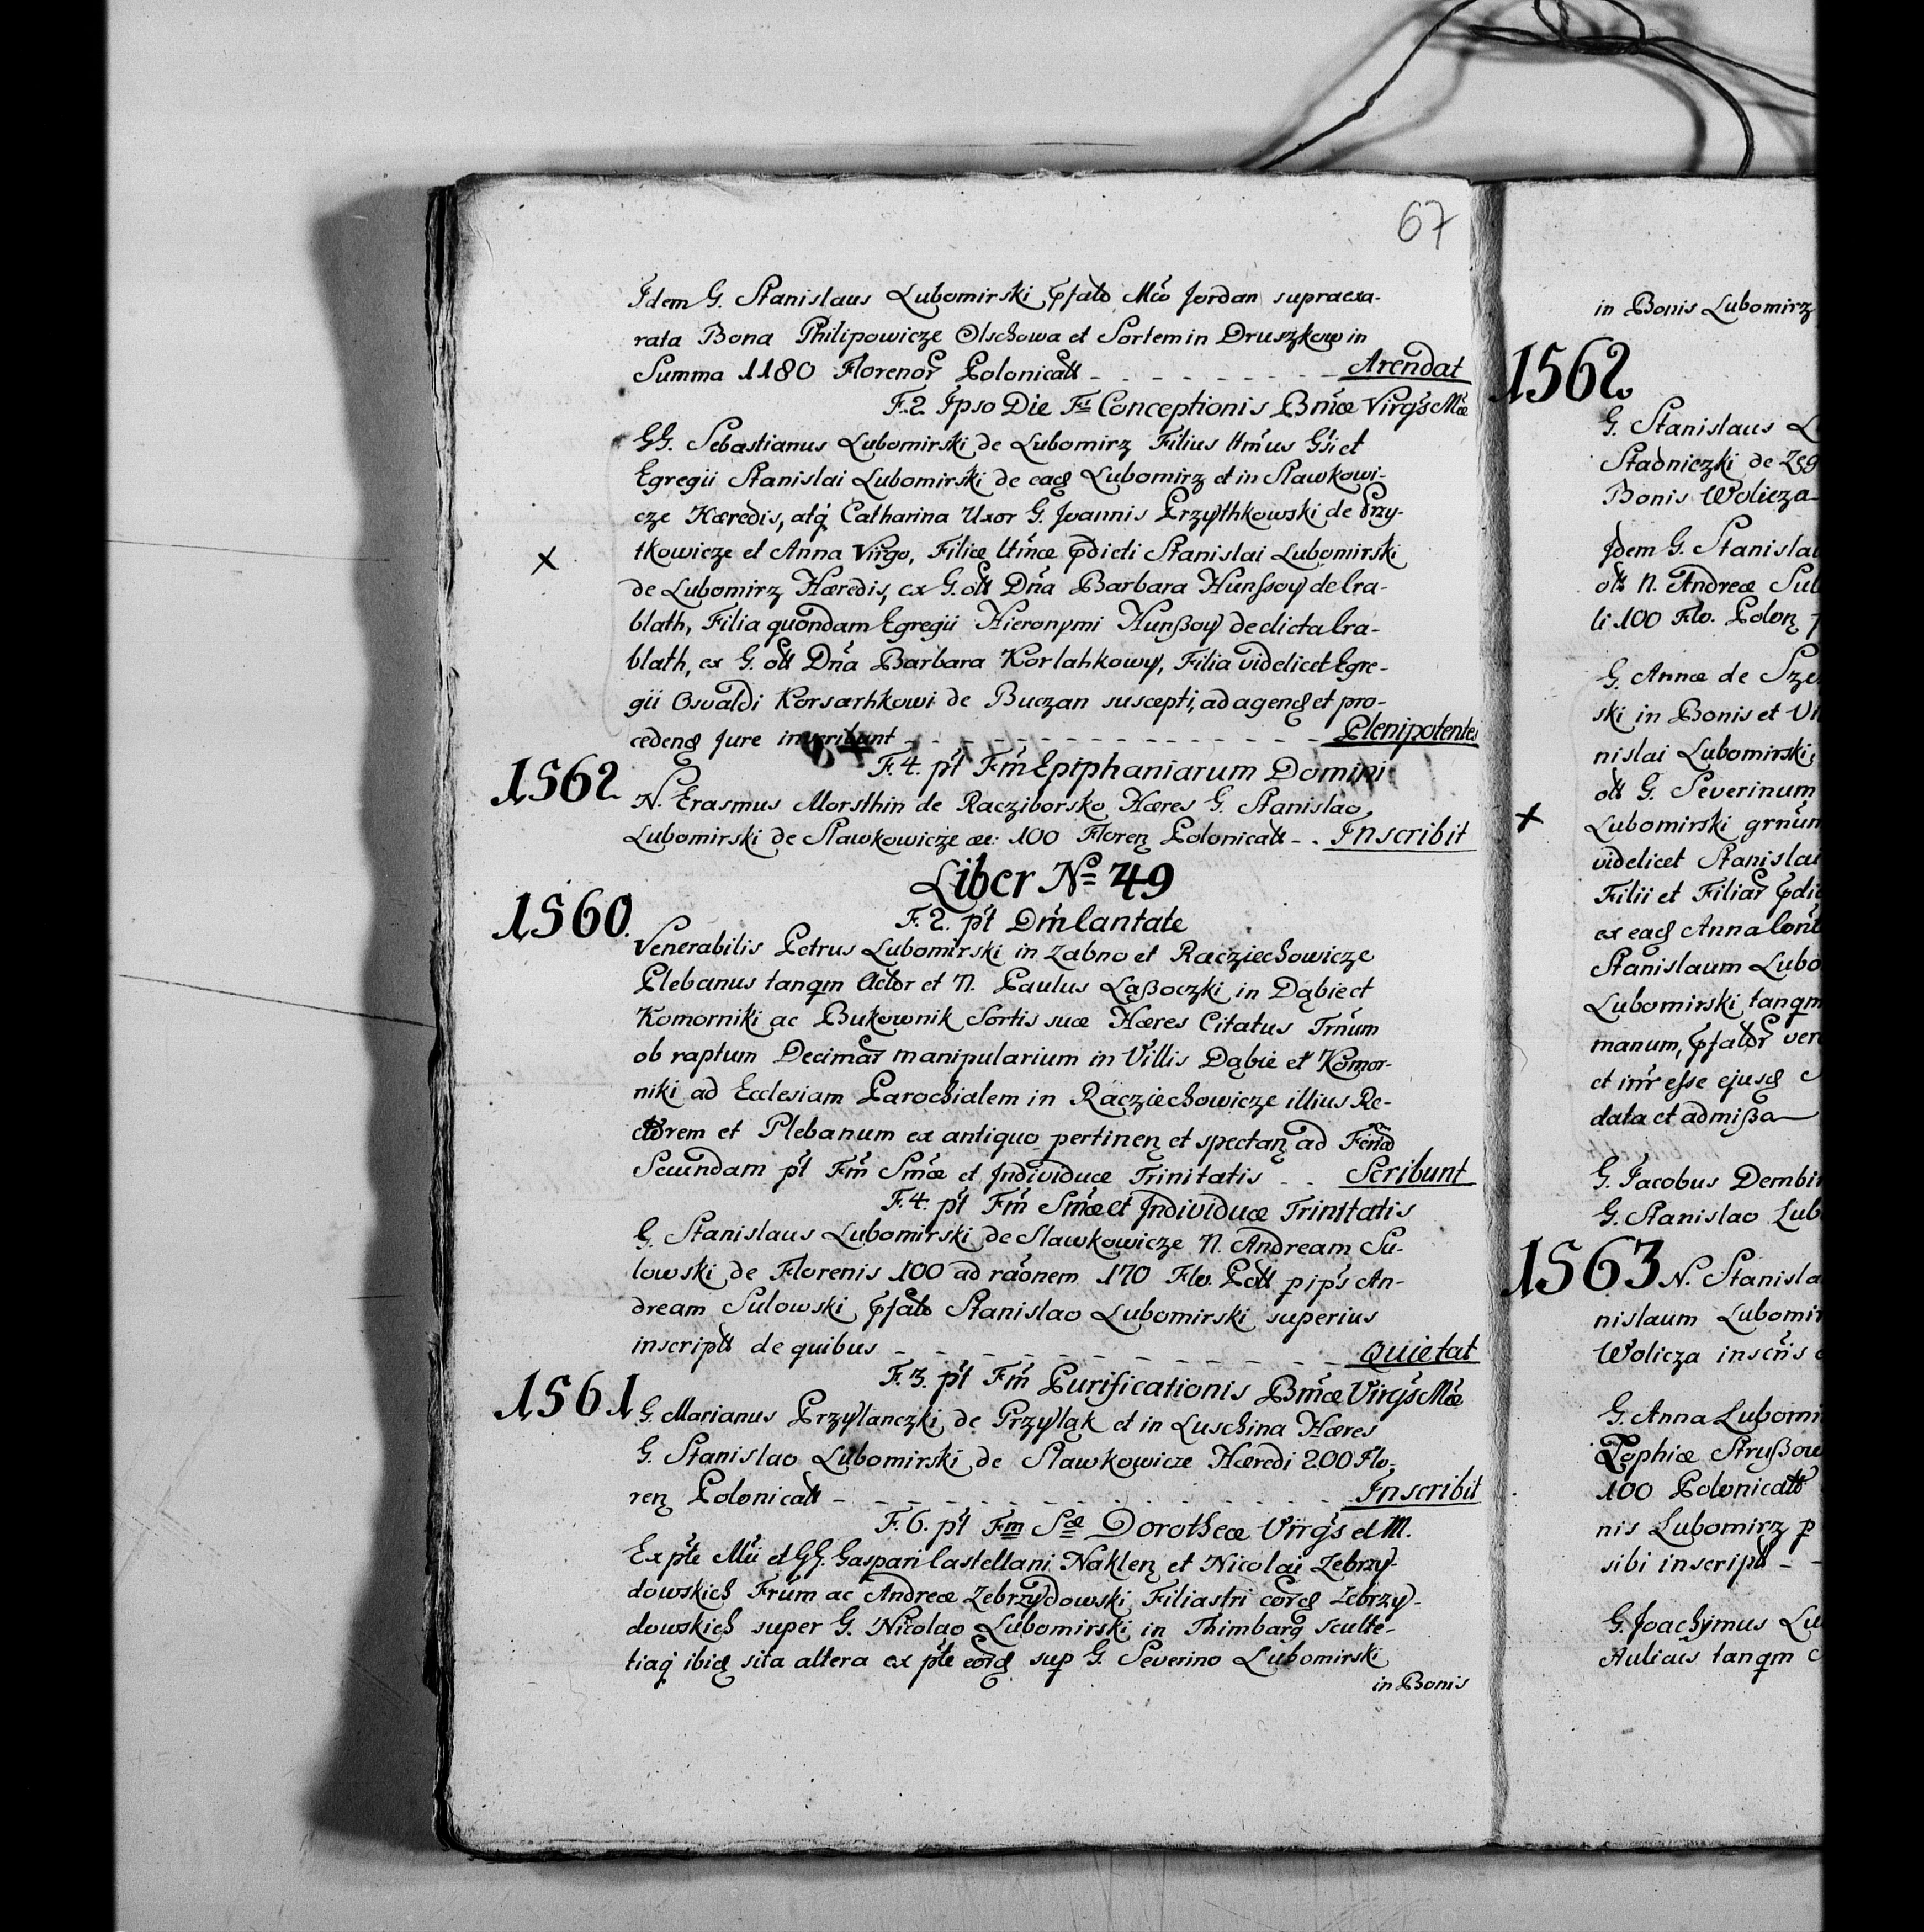 67
Idem G. Stanislaus Lubomirski Pfato Mco Jordan supraexa-
rata Bona Philipowicze Olschowa et Sortem in Druszkow in
Summa 1180 Florenor Polonicatt - - - Arendat
F. 2. Ipso Die Fti Conceptionis Bmæ Virgs Mæ
GG. Sebastianus Lubomirski de Lubomirz Filius Utmus Gsi et
Egregii Stanislai Lubomirski de eadq Lubomirz et in Slawkowi-
cze Hæredis, atq Catharina Uxor G. Joannis Przythkowski de Przy-
x tkowicze et Anna Virgo, Filiæ Utmæ pdicti Stanislai Lubomirski
de Lubomirz Hæredis, ex G. ott Dna Barbara Hunssoy de Cra-
blath, Filia quondam Egregii Hieronymi Hunßoy de dicta Cra-
blath, ex G. ott Dna Barbara Korlahkowy, Filia videlicet Egre-
gii Osvaldi Korsarhkowi de Buczan suscepti, ad agend et pro-
cedend Jure - - - Plenipotentes
F. 4. pt Fm Epiphaniarum Domini
1562 N. Erasmus Morsthin de Racziborsko Hæres G. Stanislao
Lubomirski de Slawkowicze 100 Floren Polonicatt - - Inscribit
Liber No 49
1560. F. 2. pt Dm Cantate
Venerabilis Petrus Lubomirski in Zabno et Racziechowicze
Plebanus tanqm Actor et N. Paulus Laßoczki in Dąbie et
Komorniki ac Bukownik Sortis suæ Hæres Citatus Trnum
ob raptum Decimar manipularium in Villis Dąbie et Komor-
niki ad Ecclesiam Parochialem in Racziechowicze illius Re-
ctorem et Plebanum ex antiquo pertinen et spectan ad
Secundam pt Fm Smæ et Individuæ Trinitatis - - Scribunt
F. 4. pt Fm Smæ et Individuæ Trinitatis
G. Stanislaus Lubomirski de Slawkowicze N. Andream Su-
lowski de Florenis 100 ad raonem 170 Flo. Pott p ips An-
dream Sulowski Pfato Stanislao Lubomirski superius
inscriptt de quibus - - - Quietat
F. 3. pt Fm Purificationis Bmæ Virgs Mæ
1561 G. Marianus Przylanczki de Przyląk et in Luschina Hæres
G. Stanislao Lubomirski de Slawkowicze Hæredi 200 Flo-
ren Polonicatt - - - Inscribit
F. 6. pt Fm Sæ Dorotheæ Virgs et M.
Ex pte Mci et GG. Gaspari Castellani Naklen et Nicolai Zebrzy-
dowskich Frum ac Andreæ Zebrzydowski Filiastri eord Zebrzy-
dowskich super G. Nicolao Lubomirski in Thimbarg sculte-
tiaq ibid sita altera ex pte eord sup G. Severino Lubomirski
in Bonis
in Bonis Lubomirz
1562
G. Stanislaus
Stadniczki de
Bonis Wolicza
Idem G. Stanislaus
ott N. Andreæ
li 100 Flo. Polon
G. Annæ de
ski in Bonis et
nislai Lubomirski,
ott G. Severinum
x Lubomirski
videlicet Stanislai
Filii et Filiar
ex ead Anna
Stanislaum
Lubomirski tanqm
manum, pfator
et inr esse ejusd
data et admißa
G. Jacobus
G. Stanislao
1563 N.
nislaum
Wolicza inscns
G. Anna
Zophiæ
100 Polonicatt
nis Lubomirz p
sibi inscriptt - -
G. Joachymus
Aulicus tanqm